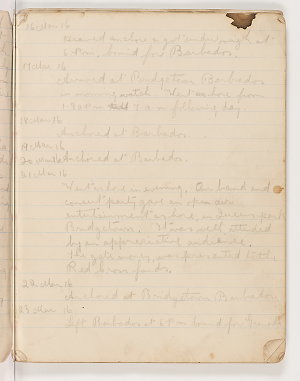 16 Mar 16
Weighed anchor & got underweigh at
6 P.m. bound for Barbados.
17 Mar 16
Arrived at Bridgetown Barbados
in morning watch. Went ashore from
1-30 P.m. till 7 a.m following day.
18 Mar 16
Anchored at Barbados.
19 Mar 16
20 Mar 16 Anchored at Barbados.
21 Mar 16
Went ashore in evening. Our band and
concert party gave an open air
entertainment ashore, in Queens park
Bridgetown. It was well attended
by an appreciative audience.
The gate money was presented to the
Red Cross funds.
22 Mar 16
Anchored at Bridgetown Barbados
23 Mar 16
Left Barbados at 6 P.m bound for Grenada